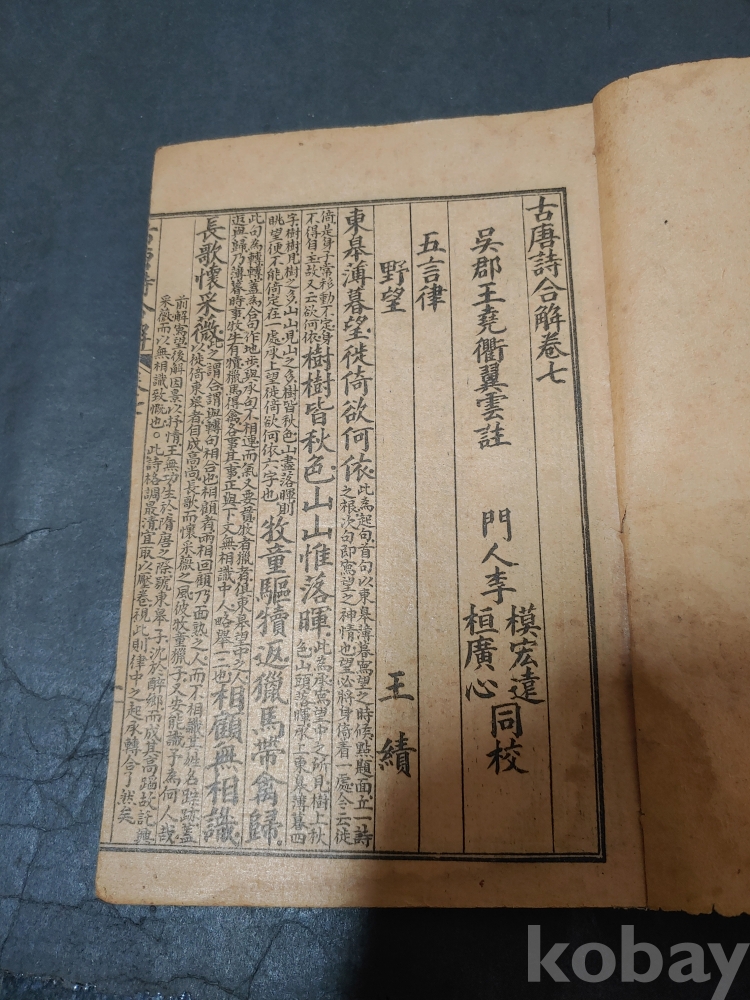 古唐詩合解卷七
吳郡王堯衢翼雲註 門人李 模宏遠 桓廣心 同校
五言律
野望 王績
東皋薄暮望徙倚欲何依 此為起句首句以東皋薄暮寫望之時候點題面立一詩
之根次句即寫望之神情也望必將身倚着一處今云徙
倚是身子常移動不定身
不得自主故又云欲何依 樹樹皆秋色山山惟落暉 此為承寫望中之所見樹上秋
色山頭落暉承上東皋薄暮四
字樹樹見樹之多山山見山之多樹皆秋色山盡落暉則
眺望便不能倚定在一處承上望徙倚欲何依六字也 牧童驅犢返獵馬帶禽歸
此句為轉轉蓋為合句作地步與承句不相連而氣又要貫牧者獵者俱東皋望中之人
返與歸乃薄暮時事牧牛有犢獵馬得禽各事其事正與下文無相識中人略舉一二也 相顧無相識
長歌懷采薇 此之謂合謂與轉句相合也相顧者兩相回顧乃面熟之人而不相識其姓名踪跡蓋
以徙倚東皋者自成高尚長歌而懷采薇之風彼牧童獵子又安能識予為何人哉
前解寫望後解因景以抒情王無功生於隋唐之際號東皋子沈飲醉鄉而成其高蹈故託興
采薇而以無相識致慨也。此詩格調最清宜取以壓卷視此則律中之起承轉合了然矣
kobay